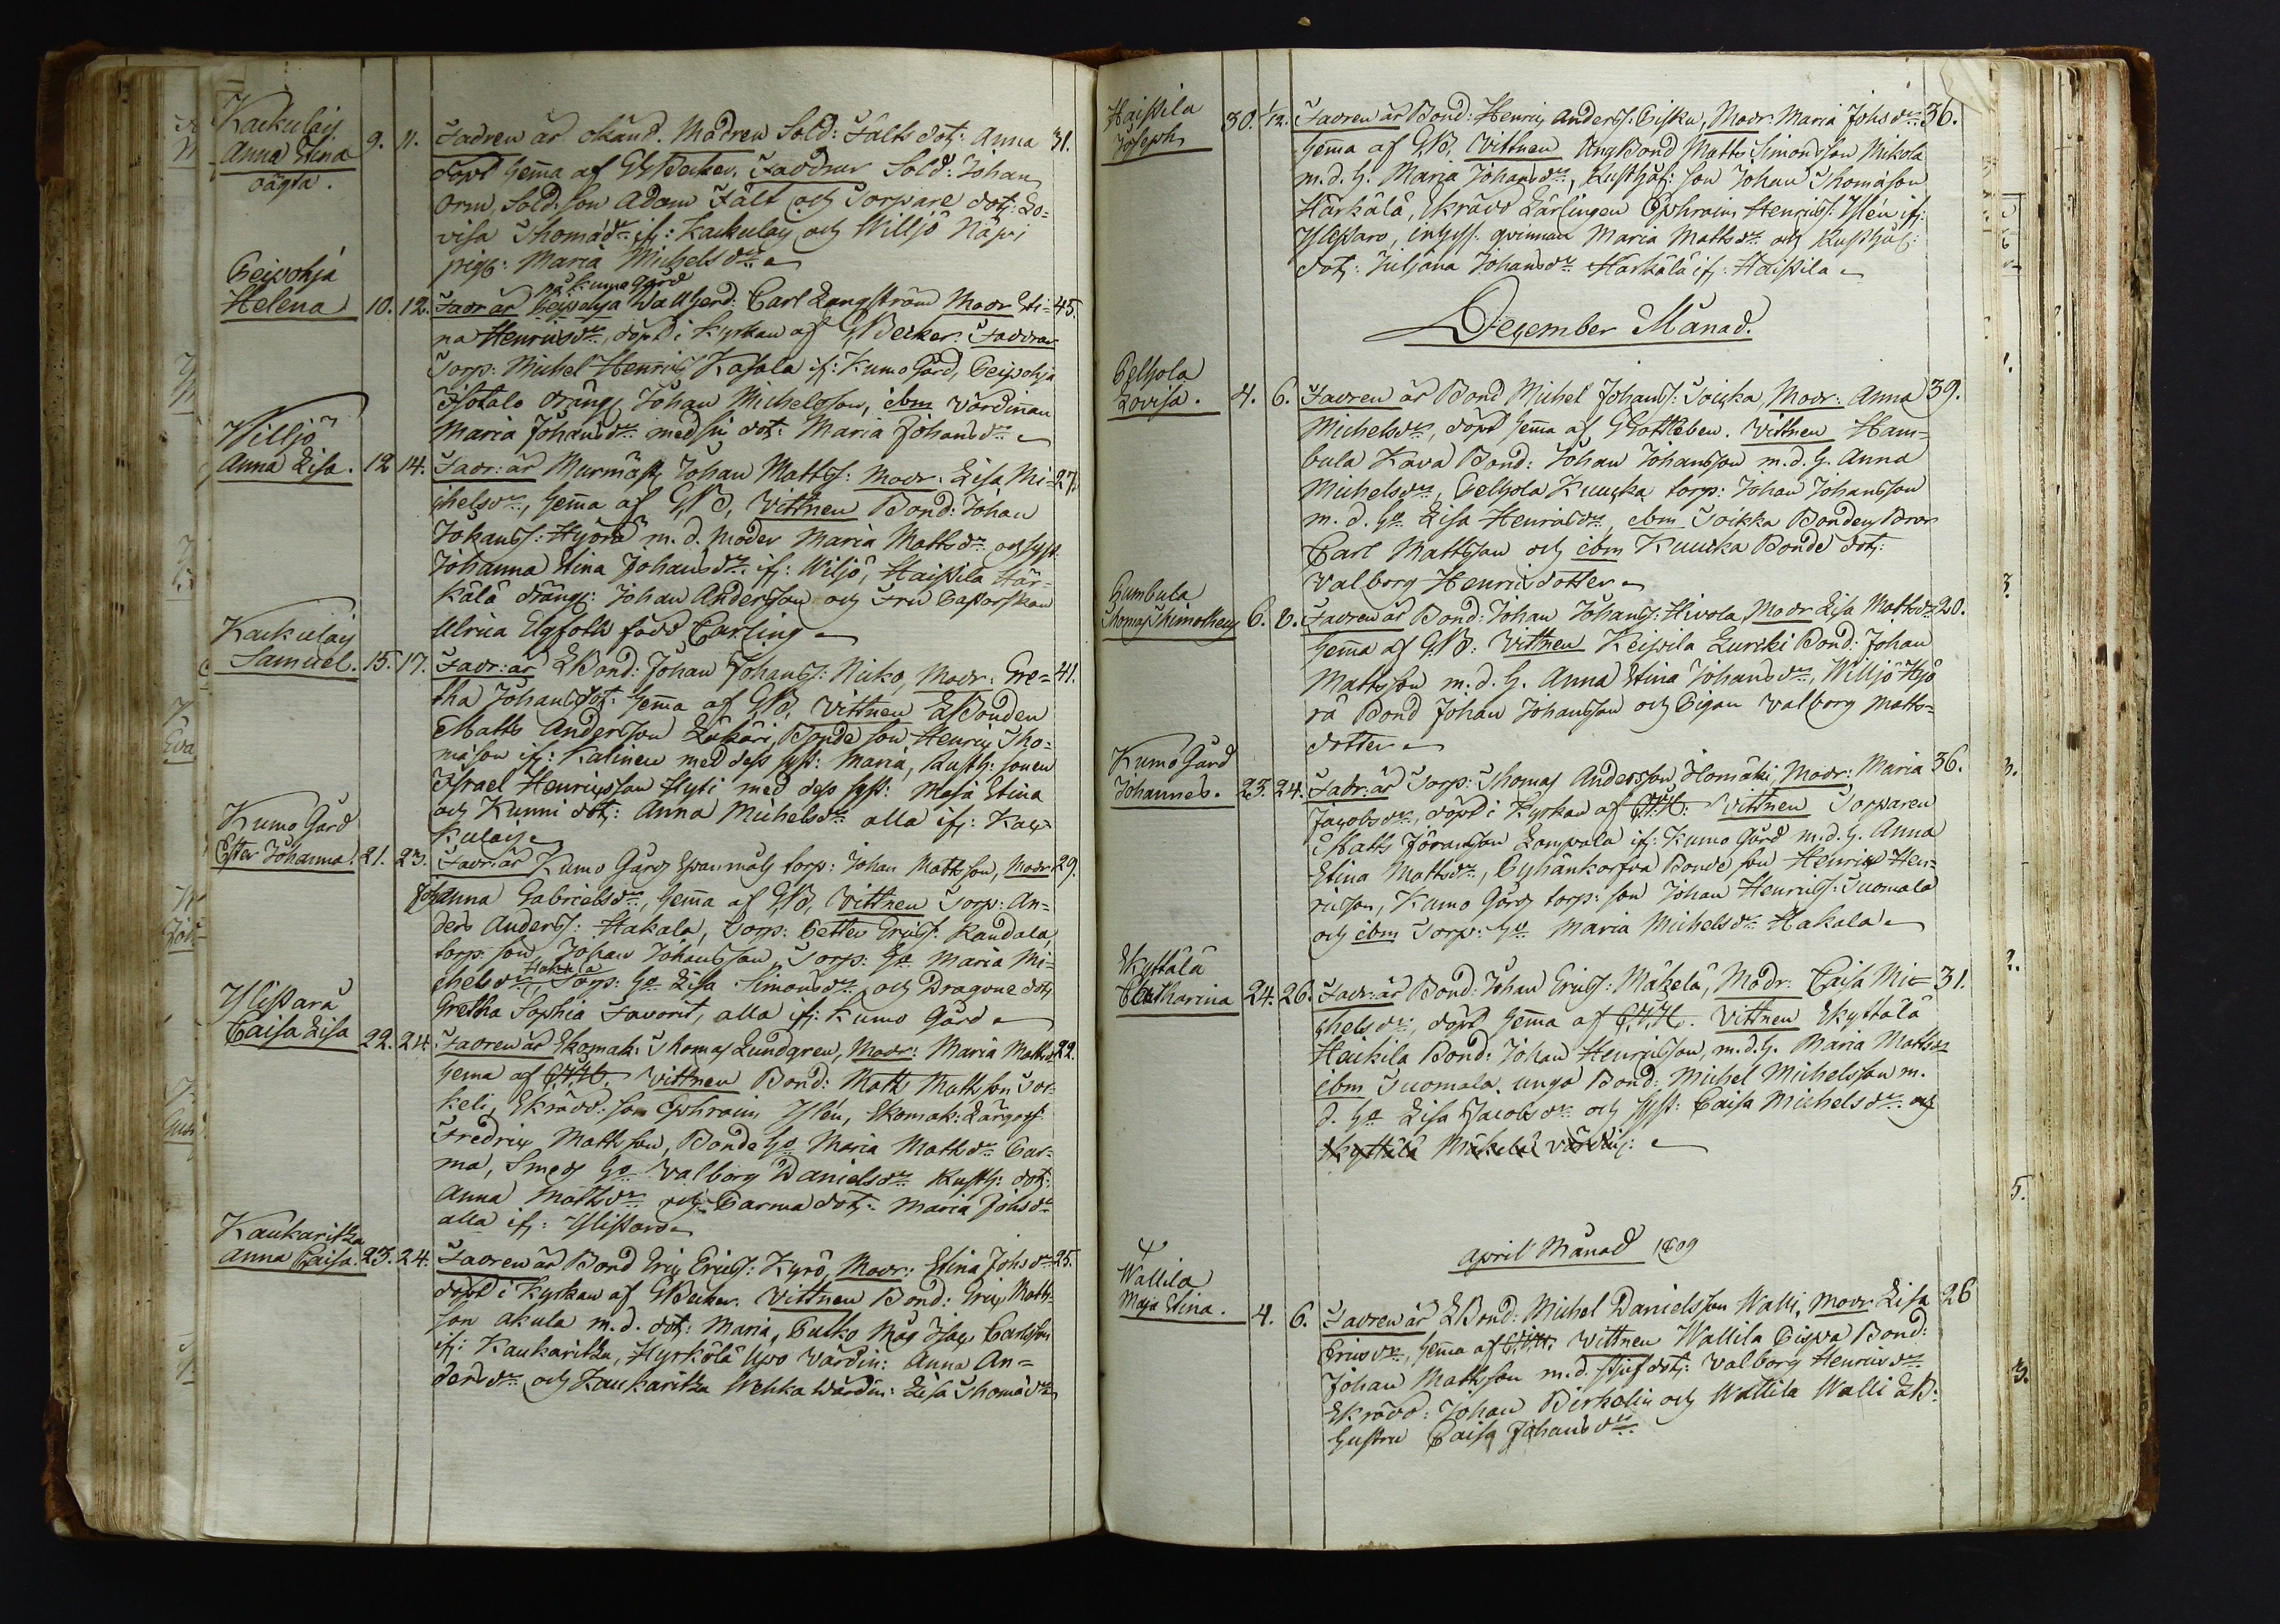 Kaekulaij
Anna Stina
oägta.
9. 11. Fadren är okänd. Modren Sold: Fälts dotr: Anna 31.
döpt hema af GBecker. Faddrar Sold: Johan
Orm, Sold: son Adam Fält och Torpare dotr: Lo=
visa Thomædr ifr: Kaekulaij och Willjö Näpi
pigs: Maria Michelsdr
Peipohja
Helena 10. 12. Fadr är Peipohja Carl Langström Modr Sti= 45.
på Kumo Gård
na Henricsdr, döpt i Kyrkan af GBecker. Faddrar
Torp: Michel Henrics Kasala ifr: Kumo Gård, Peipohja
Isotalo drängs Johan Michelsson, ibm värdinnan
Maria Johansdr med sin dotr: Maria Johansdr
Willjö
Anna Lisa. 12 14. Fadr: är Murmäst Johan Matts: Modr: Lisa Mi= 27.
chelsdr, hema af GB, Vittnen Bond: Johan
Johans: Hyörä m. d. Moder Maria Mattsdr och syst
Johanna Stina Johansdr ifr: Wiljö, Haistila Här=
kälä drängs: Johan Andersson och Fru
Ulrica Elgfoth född Carling
Kaekulaij
Samuel. 15. 17. Fadr: är LBond: Johan Johans: Nicko, Modr: Gre= 41.
tha Johansdotr: hema af GB, Vittnen LBonden
Matts Andersson Bonde son Henric Tho=
mæson ifr: Kalinen med dess syst: Maria, Rusth: sonen
Israel Henricsson Hyti med dess syst: Maja Stina
och Kunni dotr: Anna Michelsdr alla ifr: Kae=
kulaij
Kumo Gård
Ester Johanna. 21. 23. Fadr: är Kumo Gårds torp: Johan Mattsson, Modr 29.
Johanna Gabrielsdr, hema af GB, Vittnen Torp: An=
ders Anders: Hakala, Torp: Petter Erics: Randala,
torp: son Johan Johansson, Torp: Ha Maria Mi=
chelsdr Hakala Torp: Ha Lisa Simonsdr, och Dragone dotr
Gretha Sophia Favorit, alla ifr: Kumo Gård
Ylistara
Caisa Lisa 22. 24. Fadren är Skomak: Thomas Lundgren, Modr: Maria Mattsdr 22.
hema af Vittnen Bond: Matts Mattsson Tos=
keli, Skrädd: son Ephraim Ylén, Skomak: Lärgoss
Fredric Mattsson, Bonde Ho Maria Mattsdr Par=
ma, Smeds Ho Valborg Danielsdr Rusth: dotr:
Anna Mattsdr och Parma dotr: Maria Johsdr
alla ifr: Ylistaro
Kaukaritza
Anna Caisa. 23. 24. Fadren är Bond Eric Erics: Kyrö, Modr: Stina Johsdr 25.
döpt i Kyrkan af GBecker. Vittnen Bond: Eric Matts=
son Akula m. d. dotr: Maria, Culko Måg Isac Carlsson
ifr: Kaukaritza, Hyrkölä Upo Värdin: Anna An=
dersdr och Kaukaritza Wehka Wärdin: Lisa Thomædr
Haistila
Joseph 30. 1/12. Fadren är Bond: Henric Anders: Piska, Modr: Maria Johsdr 36.
hema af GB. Vittnen Ung Bond Matts Simonsson Mikola
m. d. H. Maria Johansdr, Rusthål: son Johan Thomæson
Härkälä, Skrädd Lärlingen Ephraim Henrics: Ylén ifr:
Ylistaro, inhys. qvinnan Maria Mattsdr och Rusthål:
dotr: Juljana Johansdr Härkälä ifr: Haistila
December Månad.
Pelhola
Lovisa. 4. 6. Fadren är Bond Michel Johans: Soicka, Modr: Anna 39.
Michelsdr, döpt hema af GRottkeben. Vittnen Ham=
bula Kava Bond: Johan Johansson m. d. H. Anna
Michelsdr, Pelhola Kuucka torp: Johan Johansson
m. d. Ho Lisa Henricsdr, ibm Soikka Bondens Bror
Carl Mattsson och ibm Kuucka Bonde dotr:
Valborg Henricsdotter
Cumbula
Thomas Thimotheus 6. 8. Fadren är Bond: Johan Johans: Hivola, Modr Lisa Mattsdr 20.
hema af GB. Vittnen Keipila Bond: Johan
Mattsson m. d. H. Anna Stina Johansdr, Willjö Hyö
rä Bond Johan Johansson och Pigan Valborg Matts=
dotter
Kumo Gård
Johannes. 23. 24. Fadr: är Torp: Thomas Andersson Ilomäki, Modr: Maria 36.
Jacobsdr, döpt i Kyrkan af Vittnen Torparen
Matts Göransson Lampala ifr: Kumo Gård m. d. H. Anna
Stina Mattsdr, Pyhänkorfva Bonde son Henric Hen=
ricsson, Kumo Gårds torp: son Johan Henrics: Tuomala
och ibm Torp: Ho Maria Michelsdr Hakala
Skyttälä
Catharina 24. 26. Fadr: är Bond: Johan Erics: Mäkelä, Modr: Caisa Mi= 31.
chelsdr, döpt hema af Vittnen Skyttälä
Heickilä Bond: Johan Henricsson, m. d. H. Maria Mattsdr
ibm Tuomala unga Bond: Michel Michelsson m.
d. Ho Lisa Jacobsdr och syst: Caisa Michelsdr och
Skyttälä Mäkelä värdin:
April Månad 1809
Wallila
Maja Stina. 4. 6. Fadren är LBond: Michel Danielsson Walli, Modr Lisa 26
Ericsdr, hema af Vittnen Wallila Bond:
Johan Mattsson m. d. stjufdotr: Valborg Henricsdr
Skrädd: Johan Birkelin och Wallila Walli LB:
hustru Caisa Johansdr